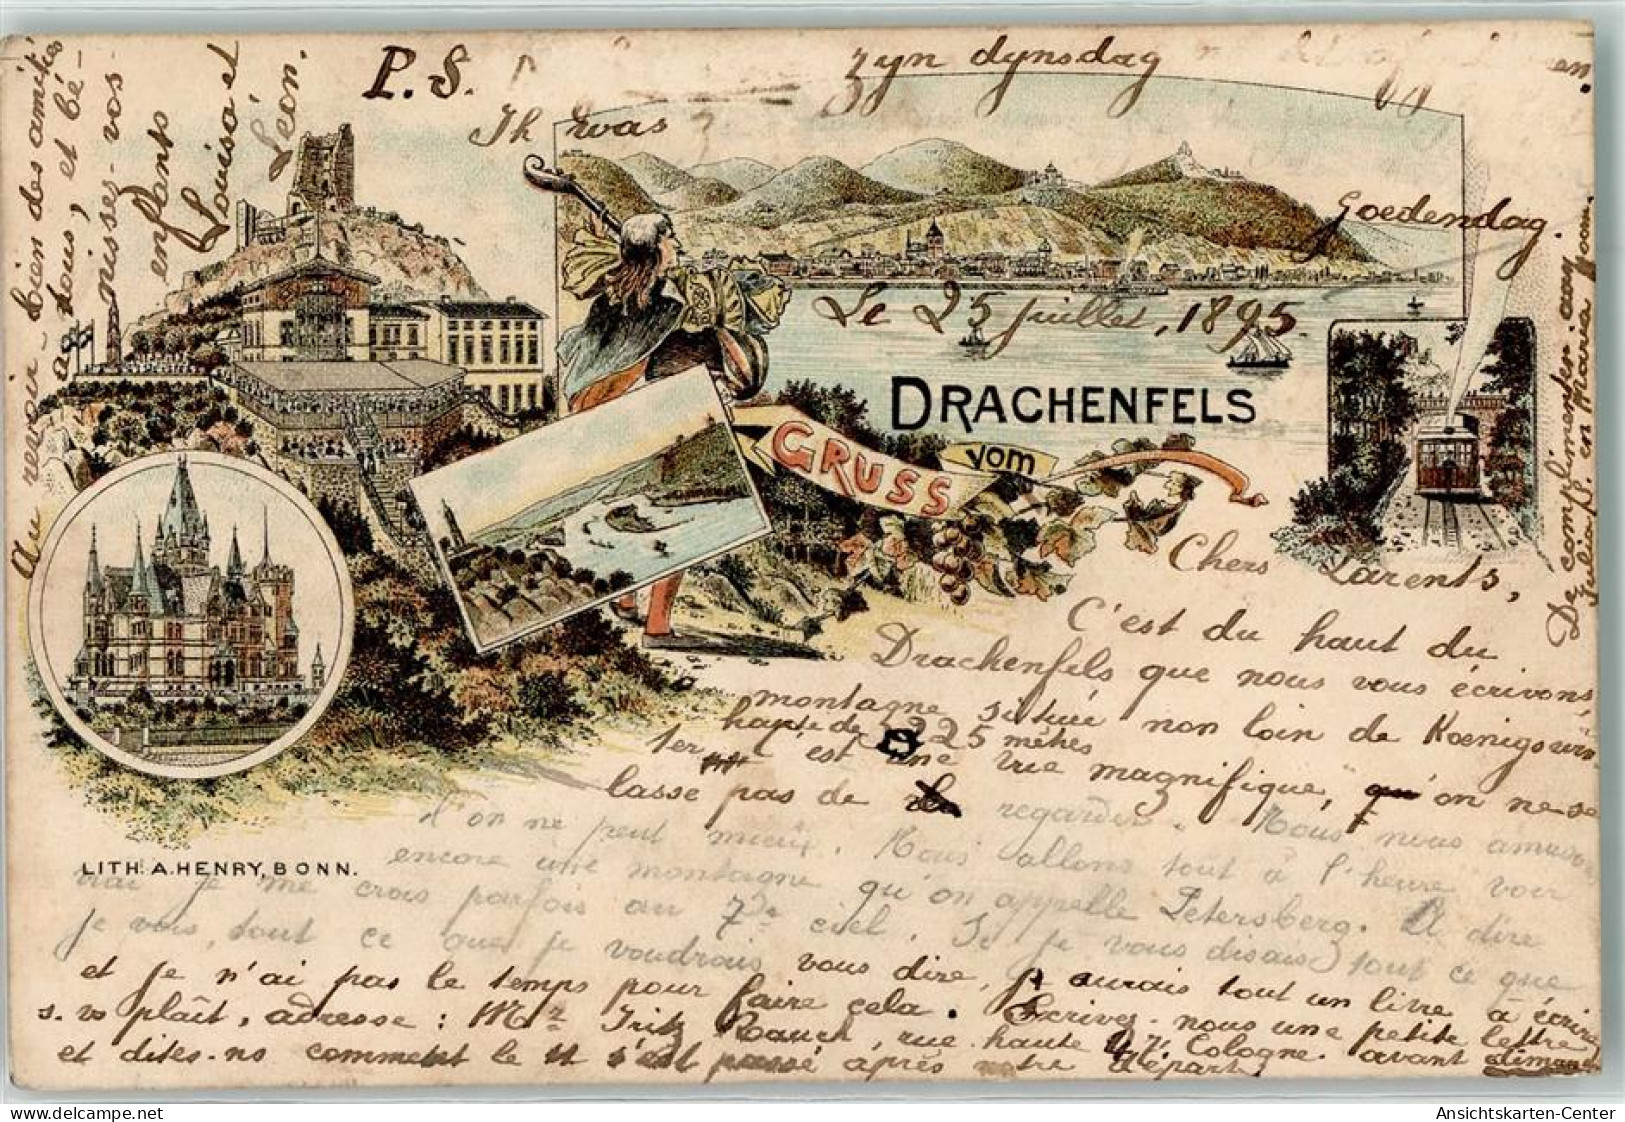 P.S.
zyn dynsdag
Ih was
Goedendag.
Le 25 juillet, 1895.
DRACHENFELS
GRUSS
vom
Chers Parents,
C'est du haut du
Drachenfels que nous vous écrivons,
montagne située non loin de Koenigswin-
haute de 325 mètres
1er c'est une vue magnifique, qu'on ne se
lasse pas de regarder. Nous nous amusons
l'on ne peut mieux. Nous allons tout à l'heure voir
encore une montagne qu'on appelle Petersberg. A dire
vrai je me crois parfois au 7e ciel. Si je vous disais tout ce que
je vois, tout ce que je voudrais vous dire, j'aurais tout un livre à écrire
et je n'ai pas le temps pour faire cela. Ecrivez-nous une petite lettre
s. vs plaît, adresse: Mr Fritz Rauch, rue haute Cologne. avant dimanche
et dites-ns comment le tt s'est passé après notre départ.
Au revoir bien des amitiés
à tous, et bé-
nissez-vos
enfants
Louisa et
Léon.
De complimenten aan
Julia P. en Maria
LITH. A. HENRY, BONN.
Ansichtskarten-Center